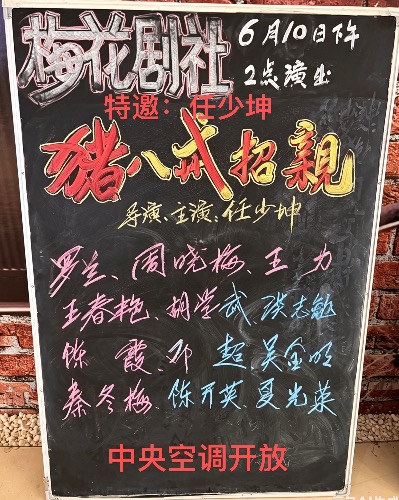 梅花剧社
6月10日下午
2点演出
特邀：任少坤
猪八戒招親
导演、主演：任少坤
罗兰、周晓梅、王力
王春艳、胡学武、谈志勉
陈霞、邓超、吴金明
秦冬梅、陈开英、夏光荣
中央空调开放